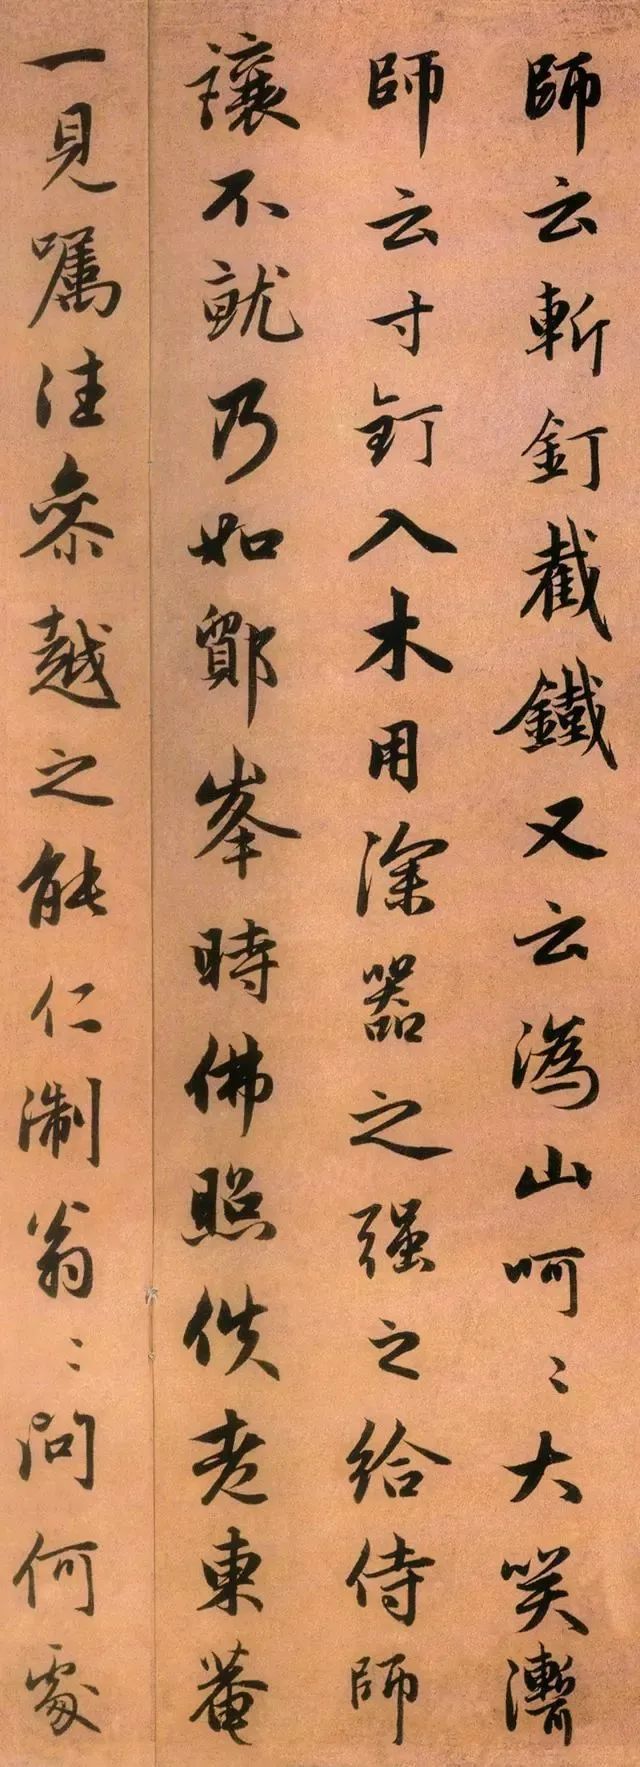 師云斬釘截鐵又云溈山呵〻大笑漸
師云寸釘入木用深器之强之給侍師
讓不就乃如鄮峯時佛照佚老東菴
一見囑注叅越之能仁淛翁〻問何處